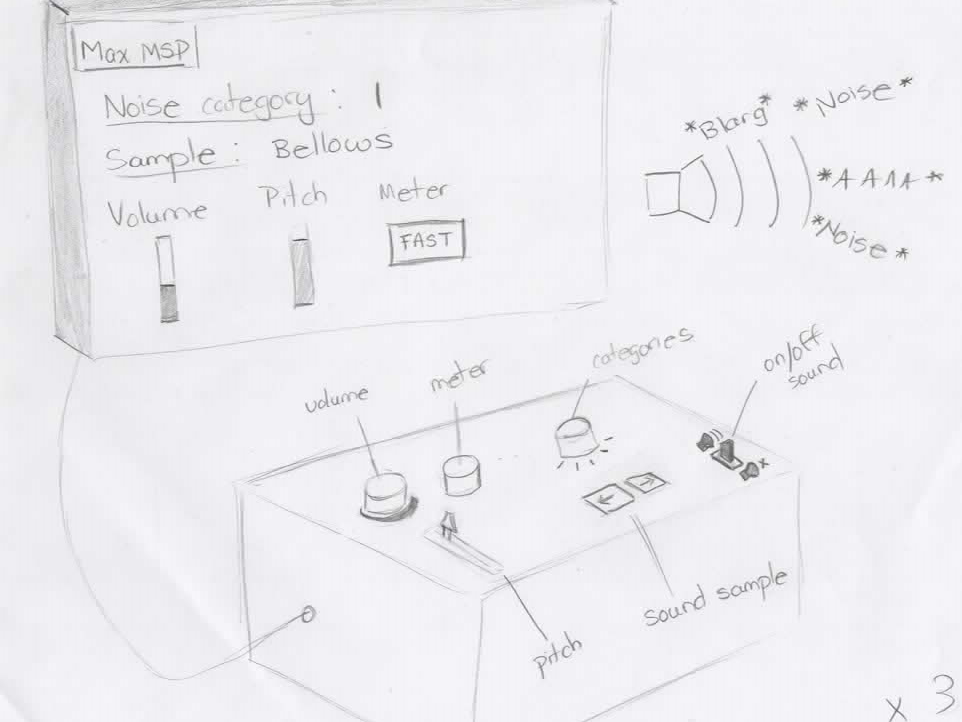 Max MSP
Noise category : 1
Sample : Bellows
Volume Pitch Meter
FAST
*Blarg* *Noise*
*AAAA*
*Noise*
volume
meter
categories
on/off
sound
sound sample
pitch
x 3